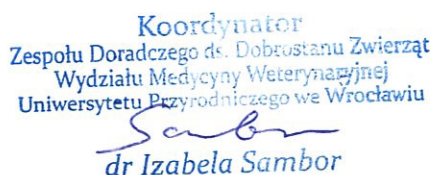 Koordynator
Zespołu Doradczego ds. Dobrostanu Zwierząt
Wydziału Medycyny Weterynaryjnej
Uniwersytetu Przyrodniczego we Wrocławiu
dr Izabela Sambor